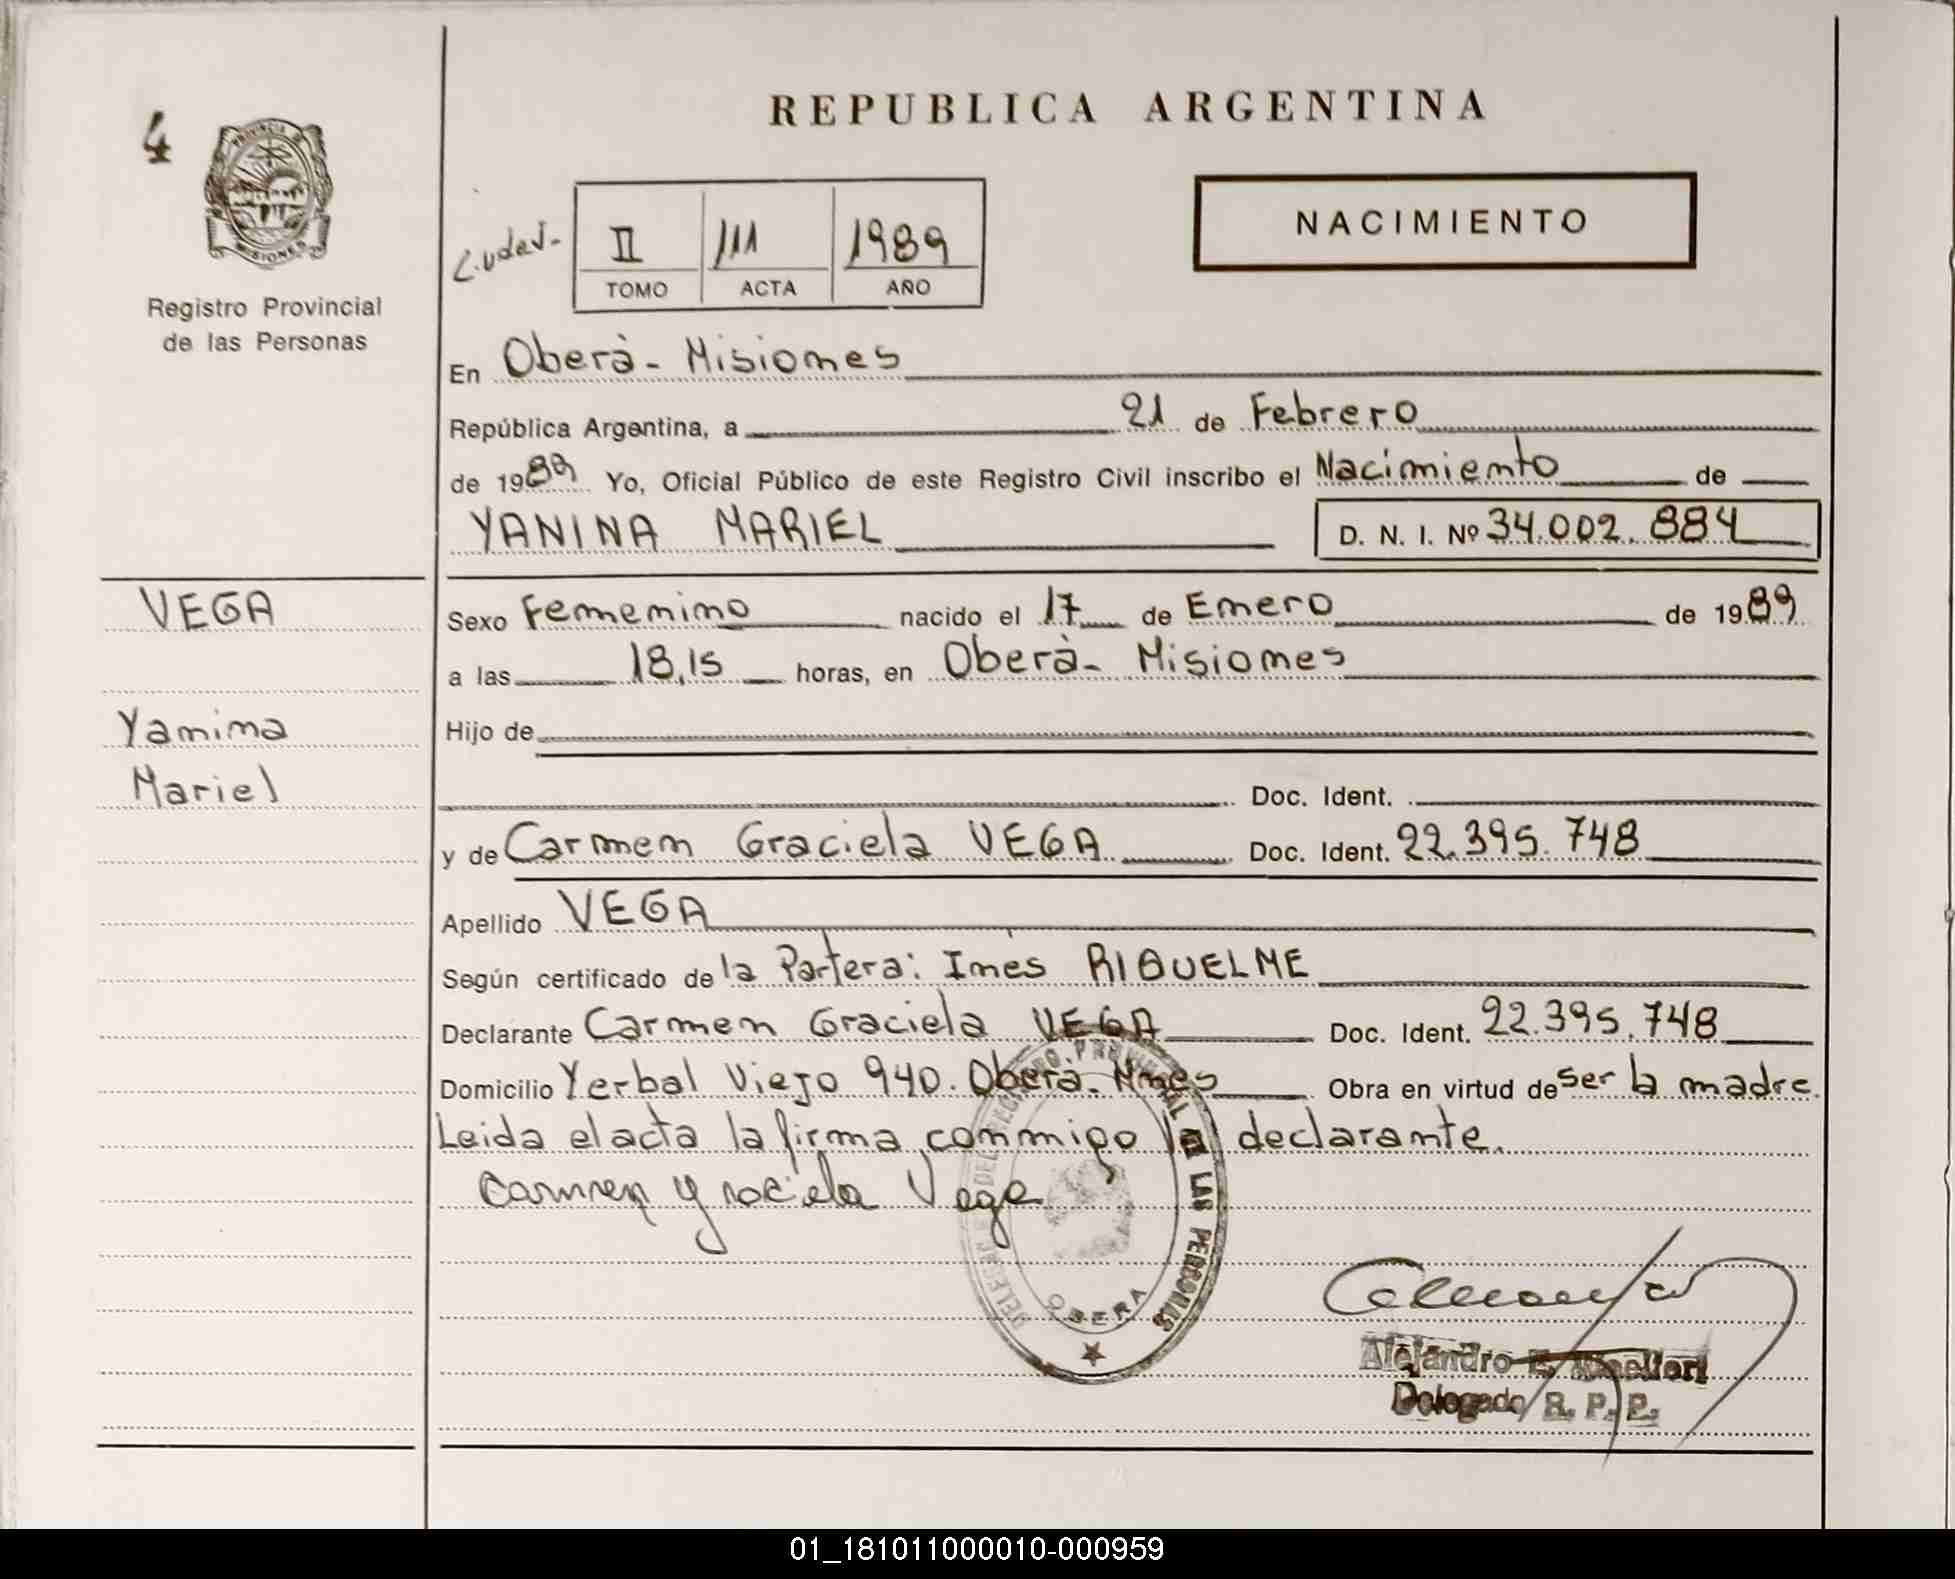 REPUBLICA ARGENTINA
4
PROVINCIA DE
MISIONES
Registro Provincial
de las Personas
NACIMIENTO
II 111 1989
TOMO ACTA AÑO
En Oberà - Misiones
República Argentina, a 21 de Febrero
de 1989 Yo, Oficial Público de este Registro Civil inscribo el Nacimiento de
YANINA MARIEL D. N. I. Nº 34.002.884
VEGA
Yanina
Mariel
Sexo Femenino nacido el 17 de Enero de 1989
a las 18,15 horas, en Oberà - Misiones
Hijo de
Doc. Ident.
y de Carmen Graciela VEGA Doc. Ident. 22.395.748
Apellido VEGA
Según certificado de la Partera: Inés RIQUELME
Declarante Carmen Graciela VEGA Doc. Ident. 22.395.748
Domicilio Yerbal Viejo 940. Oberà. Mnes Obra en virtud de ser la madre.
Leida el acta la firma conmigo la declarante.
Carmen Graciela Vega
OBERA
LAS PERSONAS
Alejandro E.
Delegado R. P. P.
01_181011000010-000959